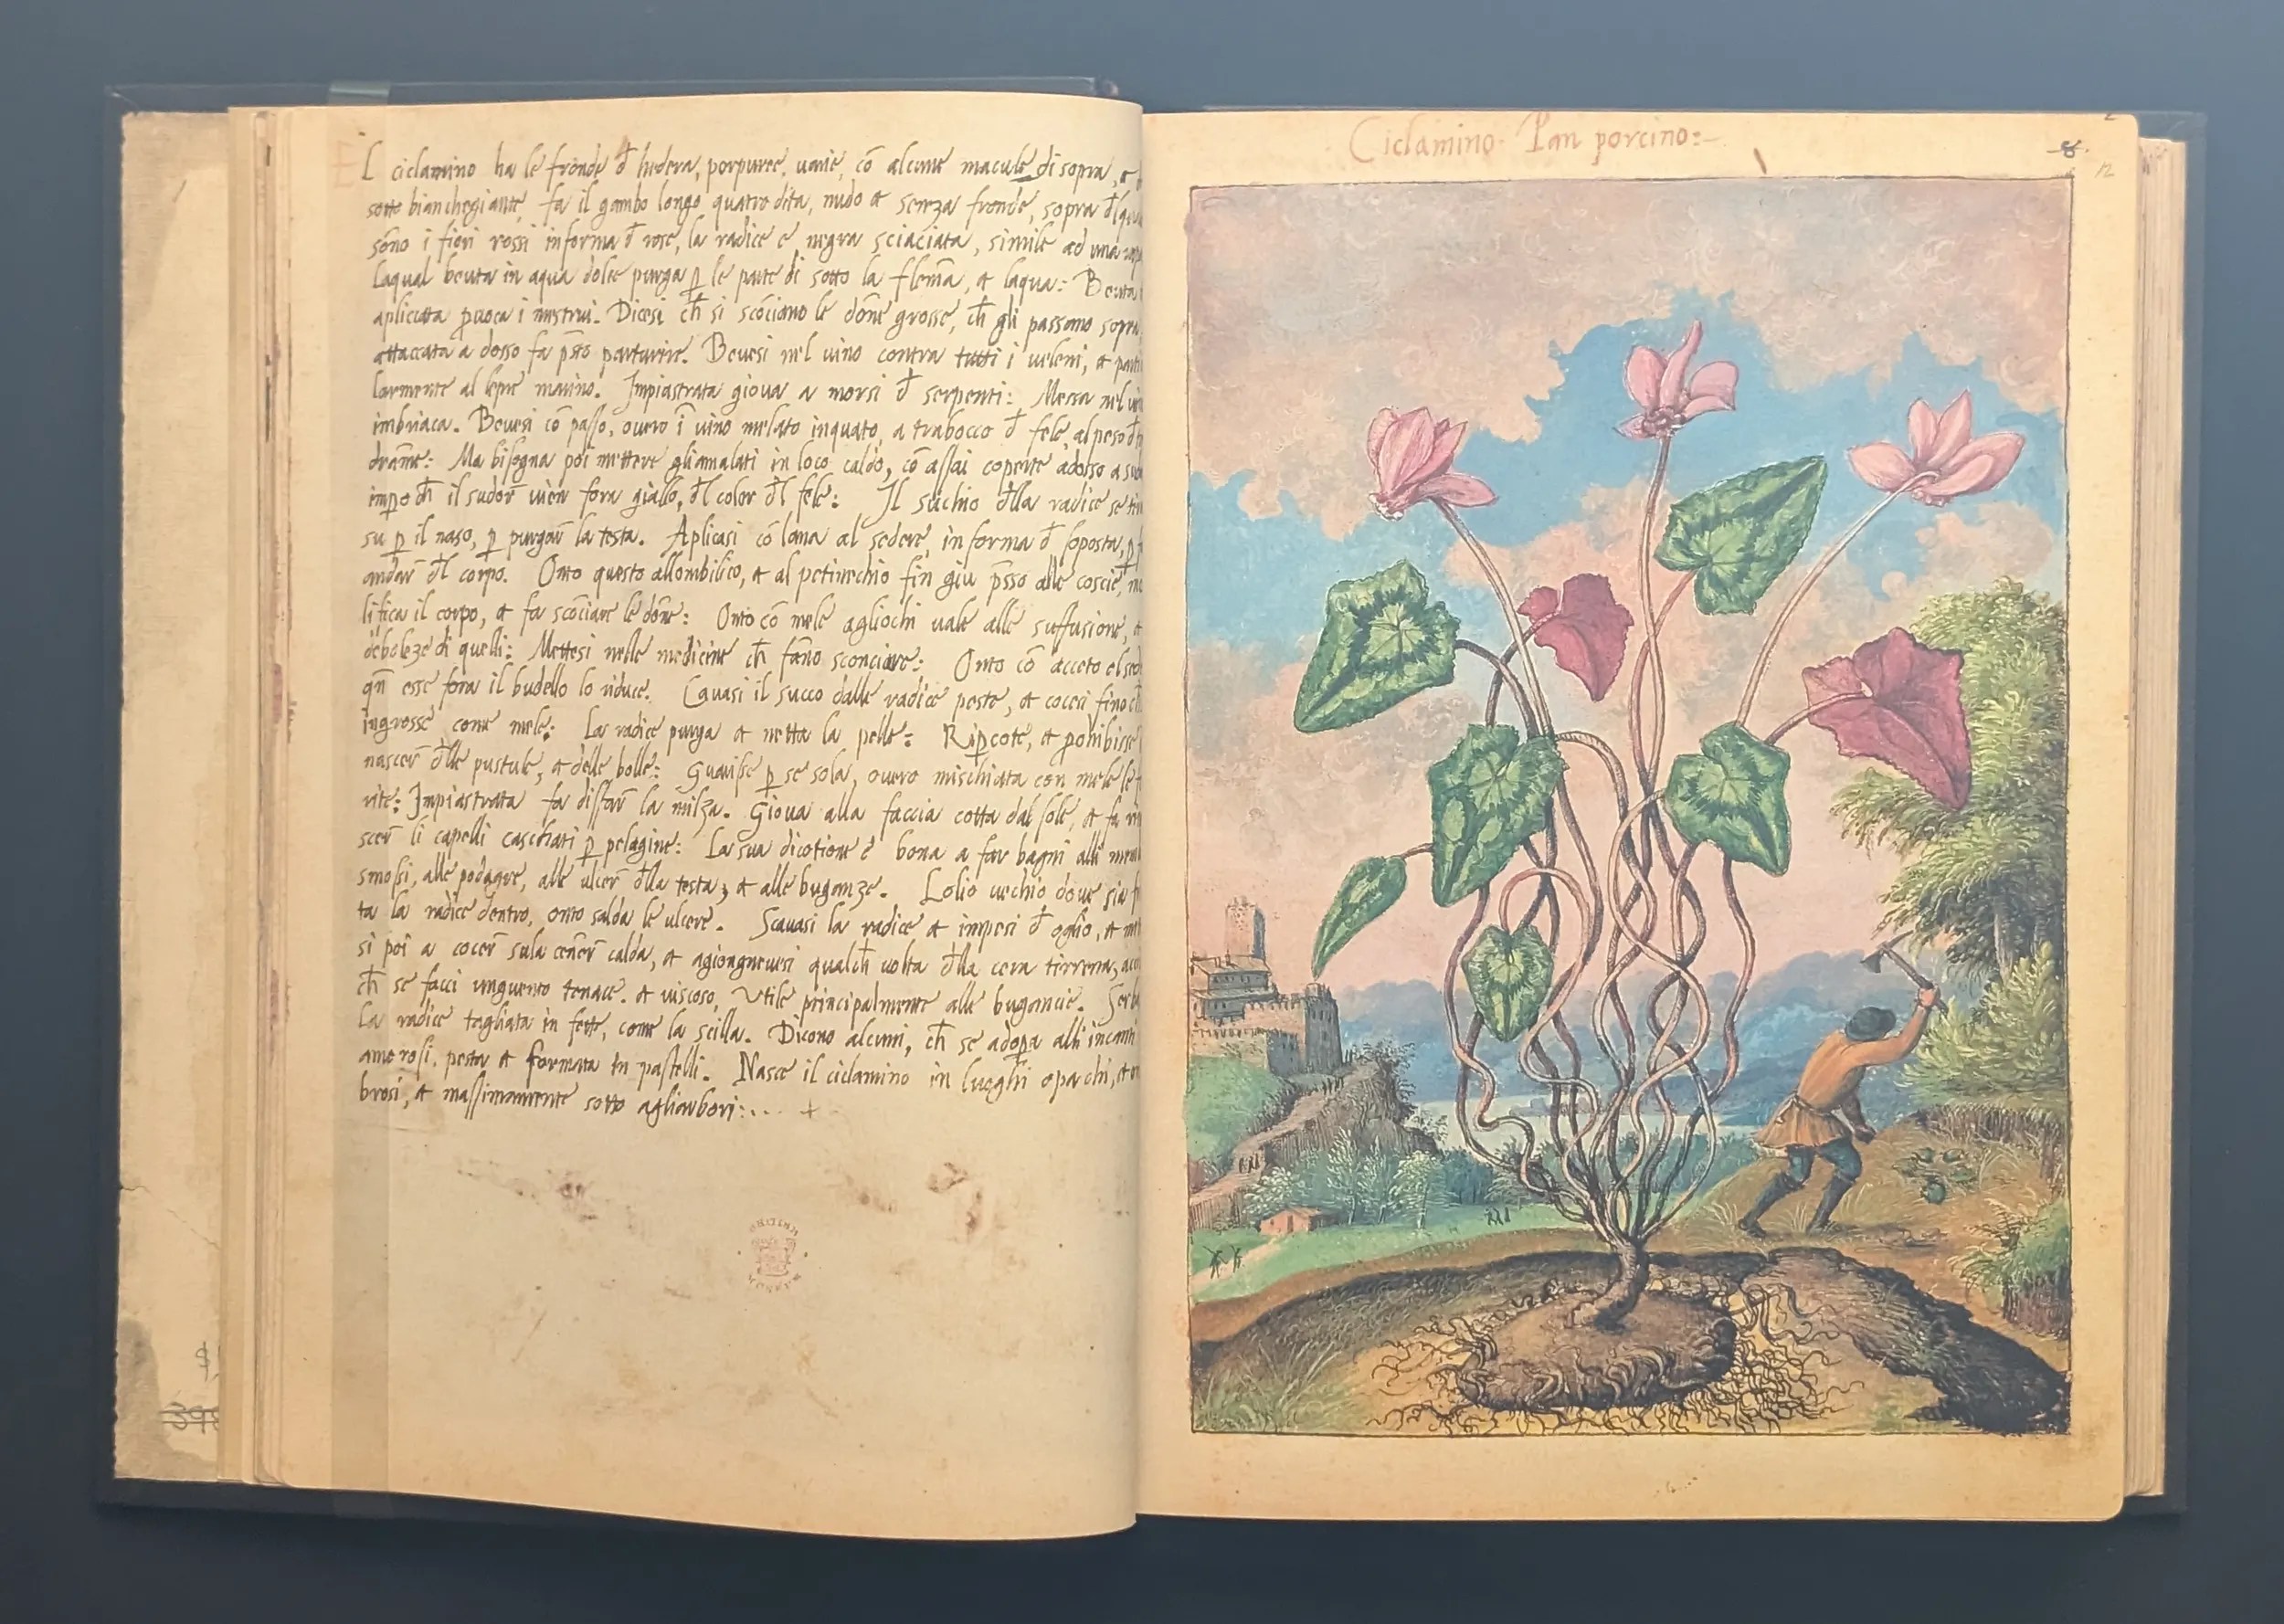 El ciclamino ha le fronde đ hedera, porpuree, uarie, cō alcune macule di sopra, et
sotto bianchegiante, fa il gambo longo quatro dita, nudo et senza fronde, sopra đl
sōno i fiori rossi in forma đ rose, la radice e negra sciaciata, simile ad una
Laqual beuta in aqua dolce purga ꝑ le parte di sotto la flem̄a, et laqua: Beuta
aplicata ꝓuoca i mestrui. Dicesi ch̄ si scōciano le dōne grosse, ch̄ gli passano sopra,
attaccata a dosso fa p̄sto parturire. Beuesi nel uino contra tutti i ueleni, et
larmente al lepre marino. Impiastrata gioua a morsi đ serpenti: Messa nel
imbriaca. Beuesi cō passo, ouero ī uino melato inquato, a trabocco đ fele, al peso đ
dram̄e: Ma bisogna poi mettere gliamalati in loco caldo, cō assai coperte adosso a
impoch̄ il sudor̄ uien fora giallo, đl color đl fele: Il suchio đlla radice se
su ꝑ il naso, ꝑ purgar̄ la testa. Aplicasi cō lana al sedere, in forma đ soposta,
andar̄ đl corpo. Onto questo allombilico, et al petinechio fin giu p̄sso alle coscie,
lifica il corpo, et fa scōciare le dōne: Onto cō mele agliochi uale alle suffusione, et
debeleze di quelli: Mettesi nelle medicine ch̄ fāno sconciare: Onto cō acceto el
qn̄ esse fora il budello lo riduce. Cauasi il succo dalle radice peste, et cocesi fino
ingrosse come mele: La radice purga et netta la pelle: Riꝑcote, et ꝓhibisse
nascer̄ đlle pustule, et delle bolle: Guarisse ꝑ se sola, ouero mischiata con mele le
rite: Impiastrata fa disfar̄ la milza. Gioua alla faccia cotta dal sole, et fa
scer̄ li capelli caschati ꝑ pelagine: La sua dicotione e bona a far bagni alli
smossi, alle podagre, alle ulcer̄ đlla testa, et alle buganze. Lolio uechio doue sia
ta la radice dentro, onto salda le ulcere. Scauasi la radice et impesi đ oglio, et
si poi a cocer̄ sula cener̄ calda, et agiongneuesi qualch̄ uolta đlla cera tirrena,
ch̄ se facci unguento tenace. et uiscoso, Vtile principalmente alle bugancie.
La radice tagliata in fette, come la scilla. Dicono alcuni, ch̄ se adoꝑa alli
amorosi, pesta et formata in pastelli. Nasce il ciclamino in luoghi opachi, et
brosi, et massimamente sotto agliarbori:... +
Ciclamino. Pan porcino:-
8.
12